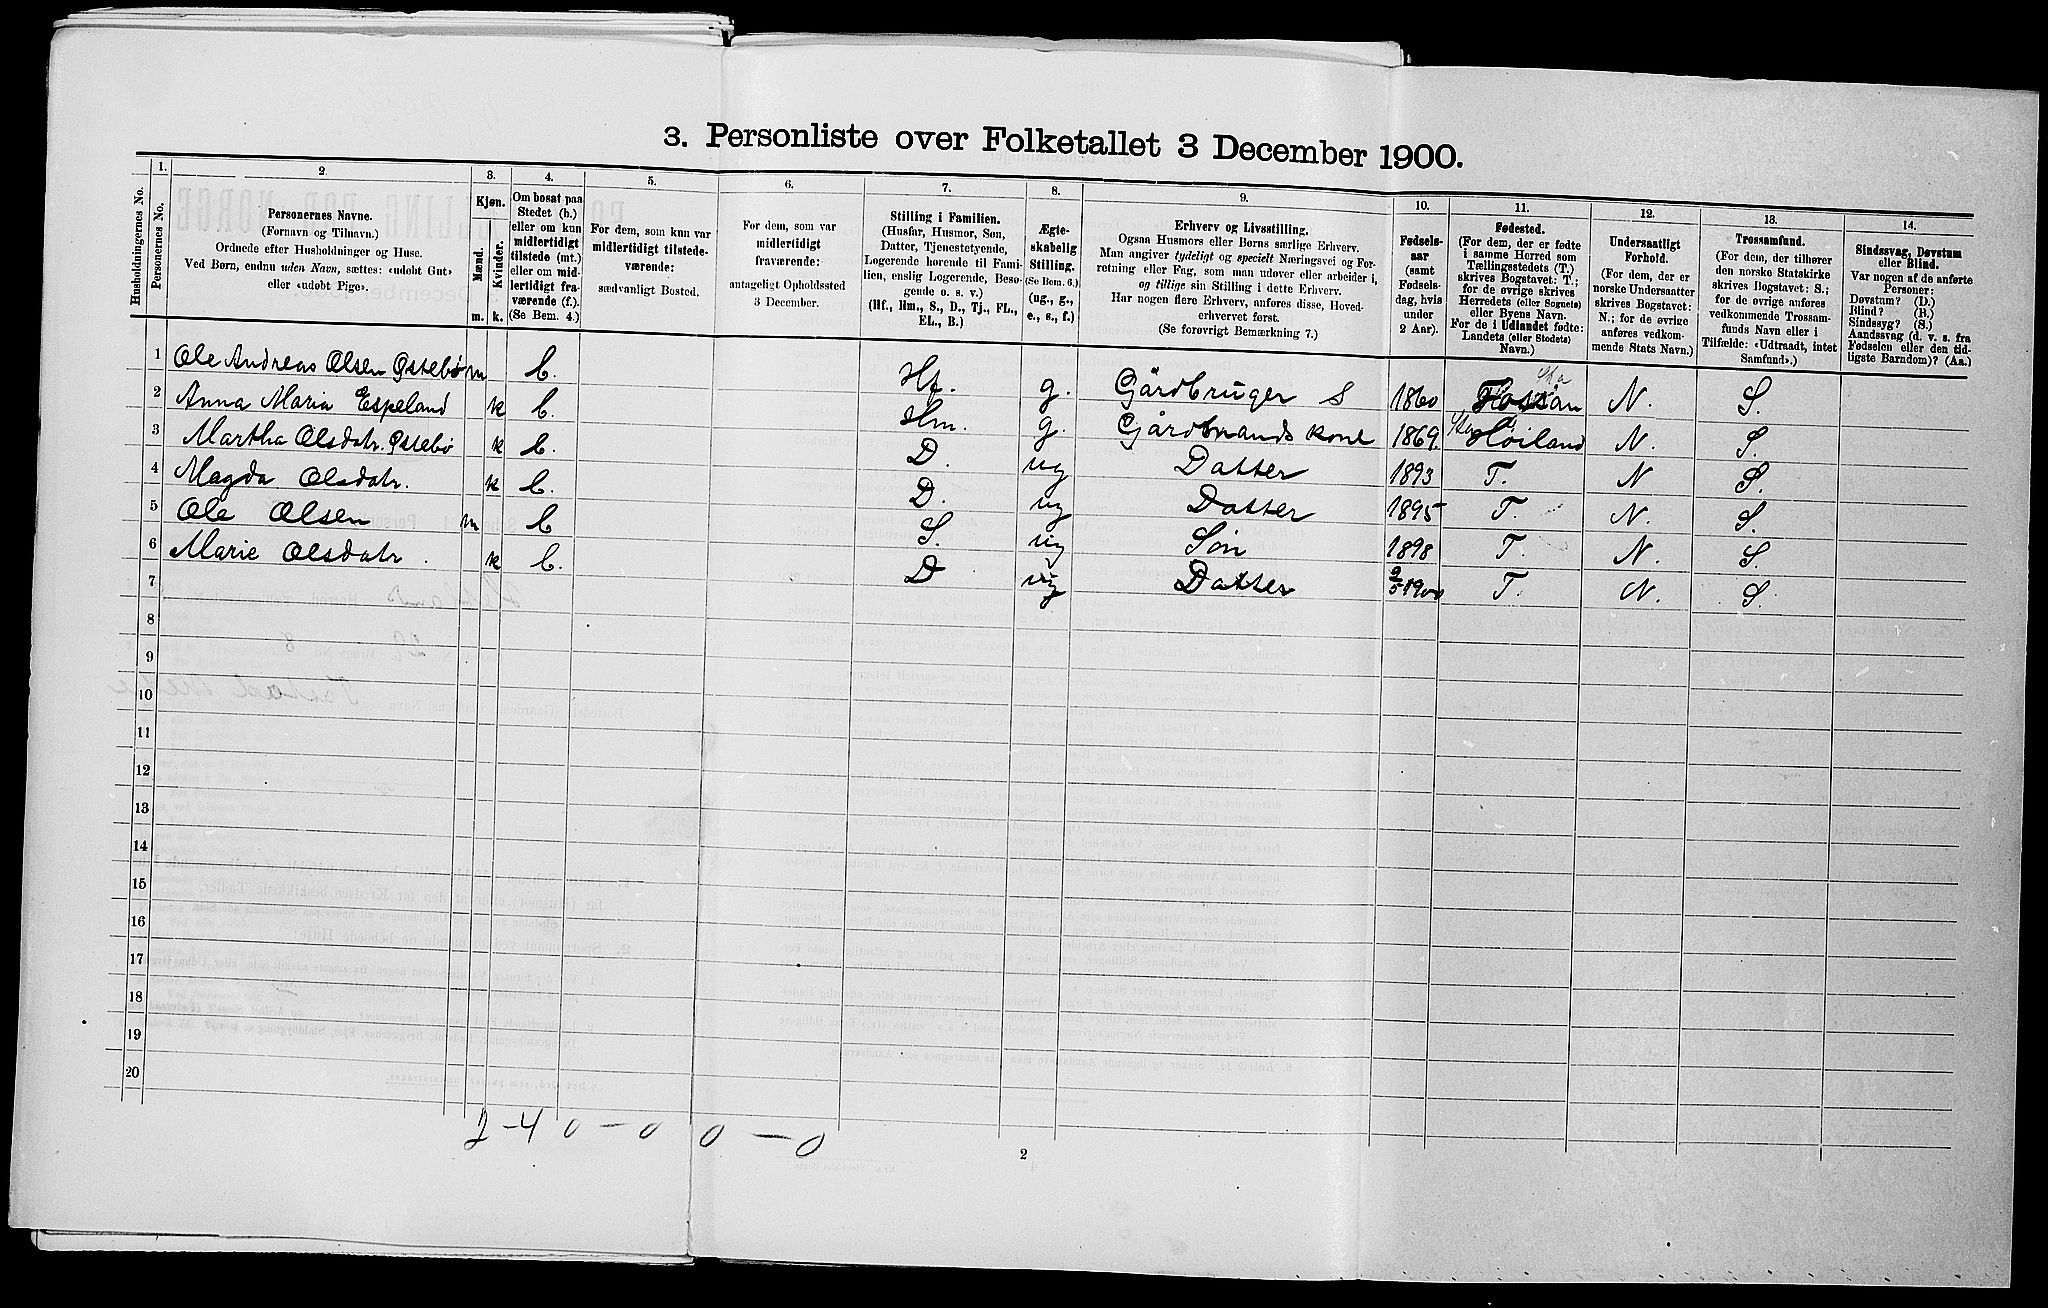 3. Personliste over Folketallet 3 December 1900.
Husholdningernes No.
1.
Personernes No.
2.
Personernes Navne.
(Fornavn og Tilnavn.)
Ordnede efter Husholdninger og Huse.
Ved Børn, endnu uden Navn, sættes: «udøbt Gut»
eller «udøbt Pige».
3.
Kjøn.
Mænd.
Kvinder.
m.
k.
4.
Om bosat paa
Stedet (b.)
eller om kun
midlertidigt
tilstede (mt.)
eller om mid-
lertidigt fra-
værende (f.).
(Se Bem. 4.)
5.
For dem, som kun var
midlertidigt tilstede-
værende:
sædvanligt Bosted.
6.
For dem, som var
midlertidigt
fraværende:
antageligt Opholdssted
3 December.
7.
Stilling i Familien.
(Husfar, Husmor, Søn,
Datter, Tjenestetyende,
Logerende hørende til Fami-
lien, enslig Logerende, Besø-
gende o. s. v.)
(Hf., Hm., S., D., Tj., FL.,
EL., B.)
8.
Ægte-
skabelig
Stilling.
(Se Bem. 6.)
(ug., g.,
e., s., f.)
9.
Erhverv og Livsstilling.
Ogsaa Husmors eller Børns særlige Erhverv.
Man angiver tydeligt og specielt Næringsvei og For-
retning eller Fag, som man udøver eller arbeider i,
og tillige sin Stilling i dette Erhverv.
Har nogen flere Erhverv, anføres disse, Hoved-
erhvervet først.
(Se forøvrigt Bemærkning 7.)
10.
Fødsels-
aar
(samt
Fødsels-
dag, hvis
under
2 Aar).
11.
Fødested.
(For dem, der er fødte
i samme Herred som
Tællingsstedets (T.)
skrives Bogstavet: T.;
for de øvrige skrives
Herredets (eller Sognets)
eller Byens Navn.
For de i Udlandet fødte:
Landets (eller Stedets)
Navn.)
12.
Undersaatligt
Forhold.
(For dem, der er
norske Undersaatter
skrives Bogstavet:
N.; for de øvrige
anføres vedkom-
mende Stats Navn.)
13.
Trossamfund.
(For dem, der tilhører
den norske Statskirke
skrives Bogstavet: S.;
for de øvrige anføres
vedkommende Trossam-
funds Navn eller i
Tilfælde: «Udtraadt, intet
Samfund».)
14.
Sindssvag, Døvstum
eller Blind.
Var nogen af de anførte
Personer:
Døvstum? (D.)
Blind? (B.)
Sindssyg? (S.)
Aandssvag (d. v. s. fra
Fødselen eller den tid-
ligste Barndom)? (Aa.)
1 Ole Andreas Olsen Østebø m b. Hf. g. Gårdbruger S 1860 Fossan N. S.
2 Anna Maria Espeland k b. Hm. g. Gårdmands kone 1869. Høiland N. S.
3 Martha Olsdatr. Østebø k b. D. ug Datter 1893 T. N S.
4 Magda Olsdatr. k b. D. ug Datter 1895 T. N. S.
5 Ole Olsen m b S. ug Søn 1898 T. N. S.
6 Marie Olsdatr. k b. D ug Datter 2/5 1900 T. N. S.
7
8
9
10
11
12
13
14
15
16
17
18
19
20
2 - 4 0 - 0 0 - 0
2